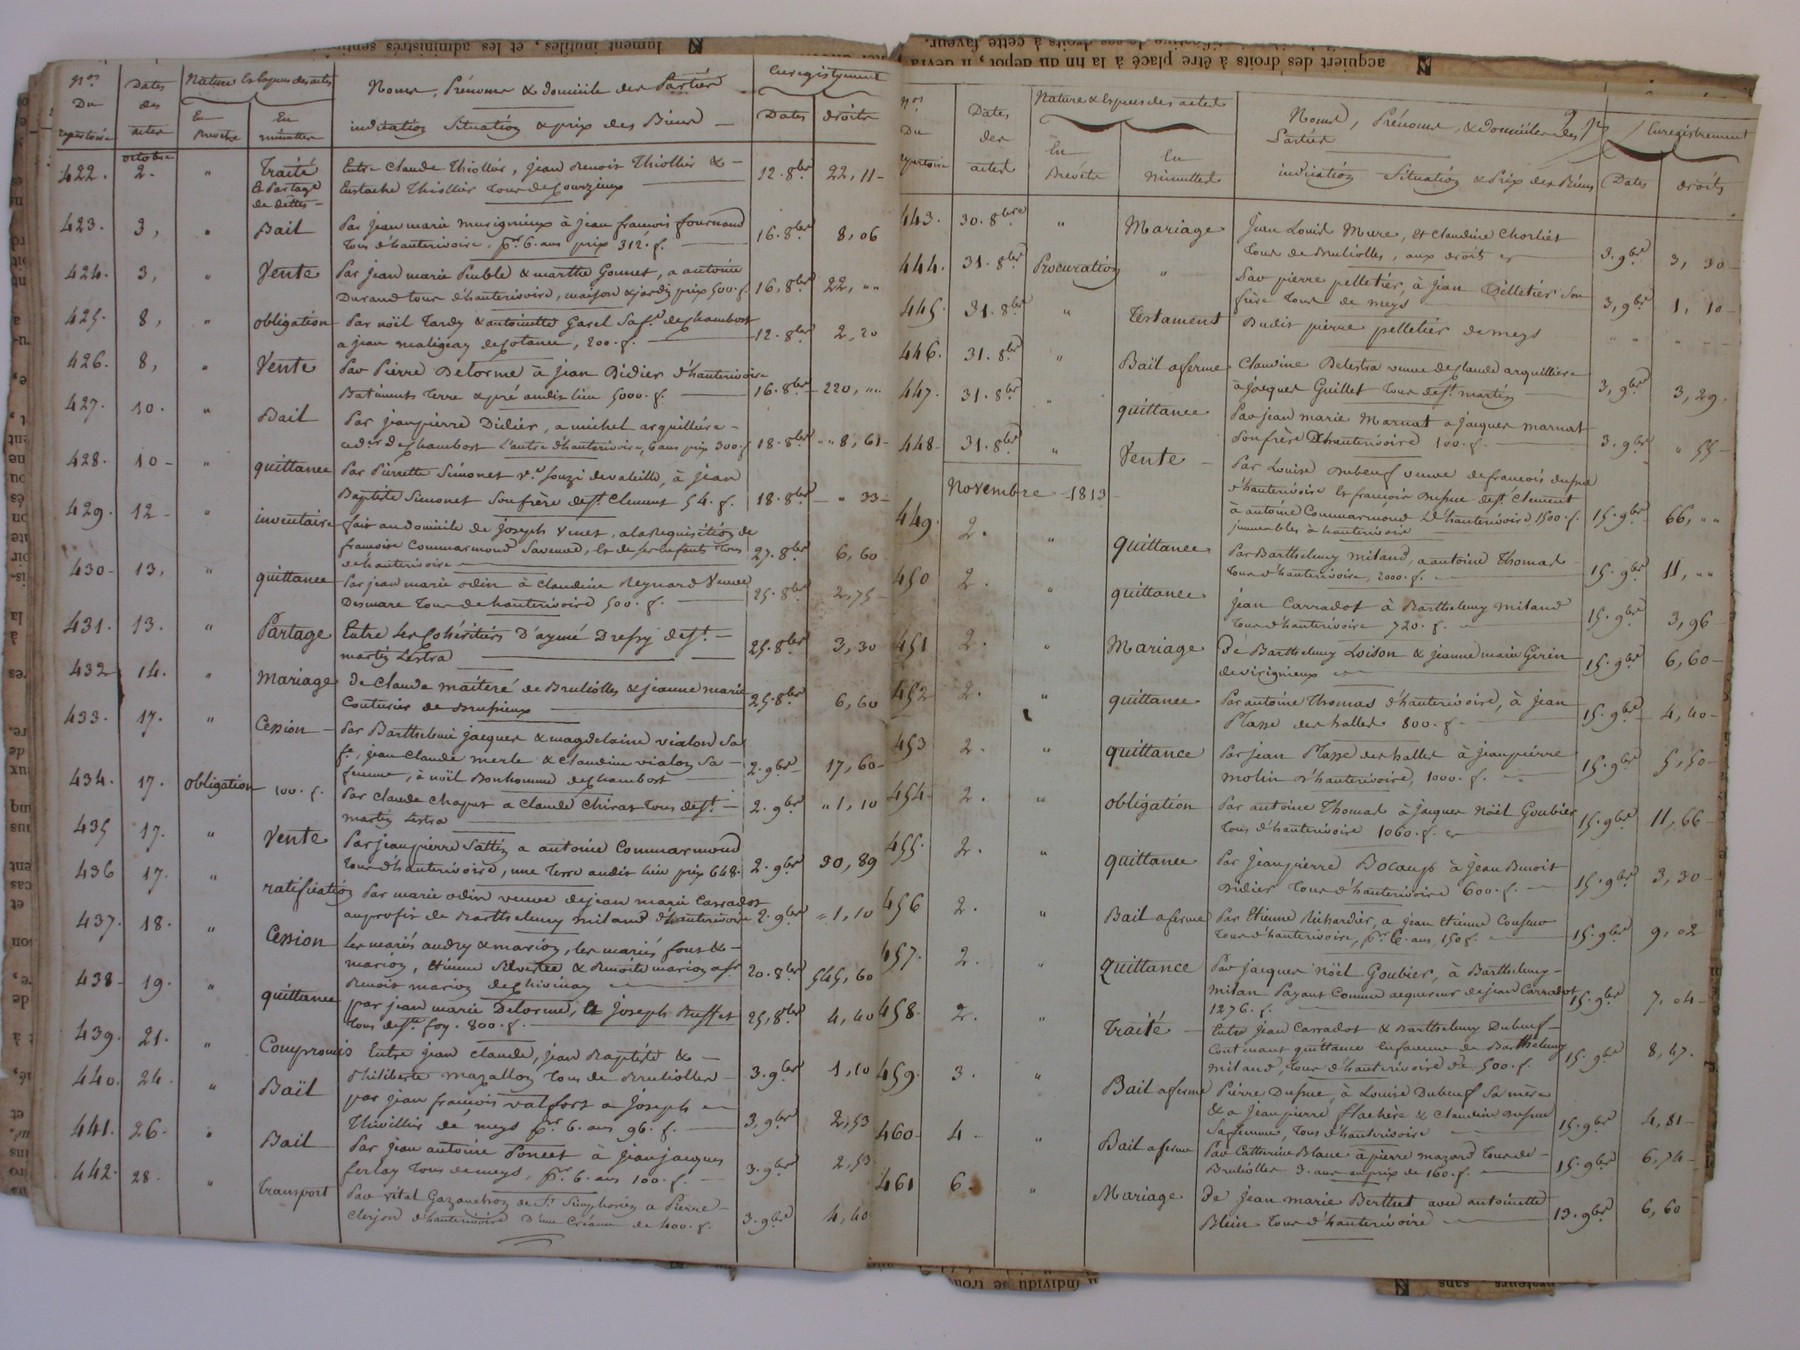 lument inutiles, et les administrés
acquiert des droits à être placé à la fin du dépôt, il devra
Nos Du repertoire
Dates des actes
Nature Et Especes des actes
En Brevets
En minuttes
Noms, Prénoms & domicile des Parties
indication Situation & prix des Biens
Enregistrement
Dates
droits
octobre
422. 2. " Traité Et Partage de dettes Entre Claude Thiollier, jean Benoit Thiollier &
Eustache Thiollier tous de Courzieux 12. 8bre 22, 11
423. 3, " Bail Par jean marie murigneux à jean francois fournand
tous d'hauterivoire, pr 6. ans prix 312. f. 16. 8bre 8, 06
424. 3, " Vente Par jean marie Puble & marthe Gonnet, a antoine
Durand tous d'hauterivoire, maison & jardin prix 500. f. 16, 8bre 22, ""
425. 8, " obligation Par noël Tardy & antoinette Garel Sa fe de Chambost
a jean maligeay de Cotance, 200. f. 12. 8bre 2, 20
426. 8, " Vente Par Pierre Delorme à jean Didier d'hauterivoire
Batiments terre & pré audit lieu 5000. f. 16. 8bre 220, ""
427. 10. " Bail Par jean pierre Didier, a michel arquillière
de Chambost l'autre d'hauterivoire, 6 ans prix 300. f. 18. 8bre "" 8, 61
428. 10 " quittance Par Pierrette Simonet ve souzi devaleille, à jean
Baptiste Simonet Son frère de st. Clement 54. f. 18. 8bre " 33
429. 12 " inventaire fait au domicile de joseph Vinet, ala Requisition de
francoise Commarmond Sa veuve, & de Ses enfants tous
de hauterivoire 27. 8bre 6, 60
430 13, " quittance Par jean marie odin à Claudine Reynard Veuve
Desmare tous de hauterivoire 500. f. 25. 8bre 2, 75
431. 13. " Partage Entre Les Cohéritiers D'aymé Drefry de st.
martin Lestra 25. 8bre 3, 30
432 14. " Mariage de Claude maiteré de Brulioles & jeanne marie
Couturier de Brusieux 25. 8bre 6, 60
433. 17. " Cession Par Barthelemi jacques & magdelaine vialon Sa
fe, jean Claude merle & Claudine vialon Sa
femme, à noël Bonhomme de Chambost 2. 9bre 17, 60
434. 17. obligation 100. f. Par Claude Chaput a Claude Chirat tous de st.
martin Lestra 2. 9bre " 1, 10
435 17. " Vente Par jean pierre Sattin a antoine Commarmond
tous d'hauterivoire, une terre audit lieu prix 648. 2. 9bre 30, 89
436 17. " ratification Par marie odin veuve de jean marie Carradot
au profit de Barthelemy miland d'hauterivoire 2. 9bre " 1, 10
437. 18. " Cession Les mariés audry & marion, les mariés font &
marion, etienne Silvestre & Benoite marion &
Benoit marion de Chivinay 20. 8bre 545, 60
438 19. " quittance par jean marie Delorme, à joseph Buffet
tous de st. foy. 800. f. 25, 8bre 4, 40
439. 21. " Compromis Entre jean Claude, jean Baptiste &
Philiberte mazallon tous de Brullioles 3. 9bre 1, 10
440. 24. " Baïl par jean francois valfort a joseph
Thivillier de meys pr 6. ans 96. f. 3, 9bre 2, 53
441. 26. " Bail Par jean antoine Poncet à jean jacques
ferlay tous de meys, pr. 6. ans 100. f. 3. 9bre 2, 53
442. 28. " transport Par vital Gazanchon de St. Simphorien a Pierre
Clerjon d'hauterivoire D'une Créance de 400. f. 3. 9bre 4, 40
Nos Du repertoire
Dates des actes
Nature & Especes des actes
En Brevets
En Minuttes
Noms, Prénoms, & domiciles des
Parties
indication Situation & Prix des Biens
Enregistrement
Dates
droits
443. 30. 8bre " Mariage Jean Louis Mure, et Claudine Chorliet
tous de Brullioles, aux droits 3. 9bre 3, 30
444. 31. 8bre Procuration " Par pierre pelletier, à jean Pelletier Son
frère tous de meys 3, 9bre 1, 10
445. 31. 8bre " Testament Dudit pierre pelletier de meys " " " "
446. 31. 8bre " Bail a ferme Claudine Delestra veuve de Claude arquilliere
à jacques Guillet tous de st. martin 3, 9bre 3, 29.
447. 31. 8bre " quittance Par jean marie Marnat a jacques marnat
Son frère D'hauterivoire 100. f. 3. 9bre " 55
448 31. 8bre " Vente Par Louise Dubeuf veuve de francois dupué
d'hauterivoire Et francois Dupué de st Clement
à antoine Commarmond d'hauterivoire 1500. f.
immeubles à hauterivoire 15. 9bre 66, ""
Novembre 1813
449. 2. " quittance Par Barthelemy Miland, a antoine Thomas
tous d'hauterivoire, 2000. f. 15. 9bre 11, ""
450 2. " quittance jean Carradot à Barthelemy miland
tous d'hauterivoire 720. f. 15. 9bre 3, 96
451 2. " Mariage De Barthelemy Loison & jeanne marie Girin
de virigneux 15. 9bre 6, 60
452 2. " quittance Par antoine Thomas d'hauterivoire, à jean
Plasse des halles 800. f. 15. 9bre 4, 40
453 2. " quittance Par jean Plasse des halles à jean pierre
molin d'hauterivoire, 1000. f. 15. 9bre 5, 50
454 2. " obligation Par antoine Thomas à jacques Noël Goubier
tous d'hauterivoire 1060. f. 15. 9bre 11, 66
455. 2. " quittance Par jean pierre Bocaup à jean Benoit
Didier tous d'hauterivoire 600. f. 15. 9bre 3, 30
456 2. " Bail a ferme Par Etienne Richardier, a jean etienne
tous d'hauterivoire, pr. 6. ans, 150 f. 15. 9bre 9, 02
457. 2. " quittance Par jacques Noël Goubier, à Barthelemy
milan Payant Comme acquereur de jean Carradot
1276. f. 15. 9bre 7, 04
458. 2. " Traité Entre jean Carradot & Barthelemy Dubeuf
Contenant quittance En faveur de Barthelemy
miland, tous d'hauterivoire de 500. f. 15. 9bre 8, 47.
459. 3. " Bail a ferme Pierre Dupué, à Louise Dubeuf Sa mère
& a jean pierre flachere & Claudine Dupué
Sa femme, tous d'hauterivoire 15. 9bre 4, 81
460 4. " Bail a ferme Par Catherine Blanc à pierre mazard tous de
Brulioles 3. ans au prix de 160. f. 15. 9bre 6, 74
461 6. " Mariage de jean marie Berthet avec antoinette
Blein tous d'hauterivoire 13. 9bre 6, 60
individu se trou